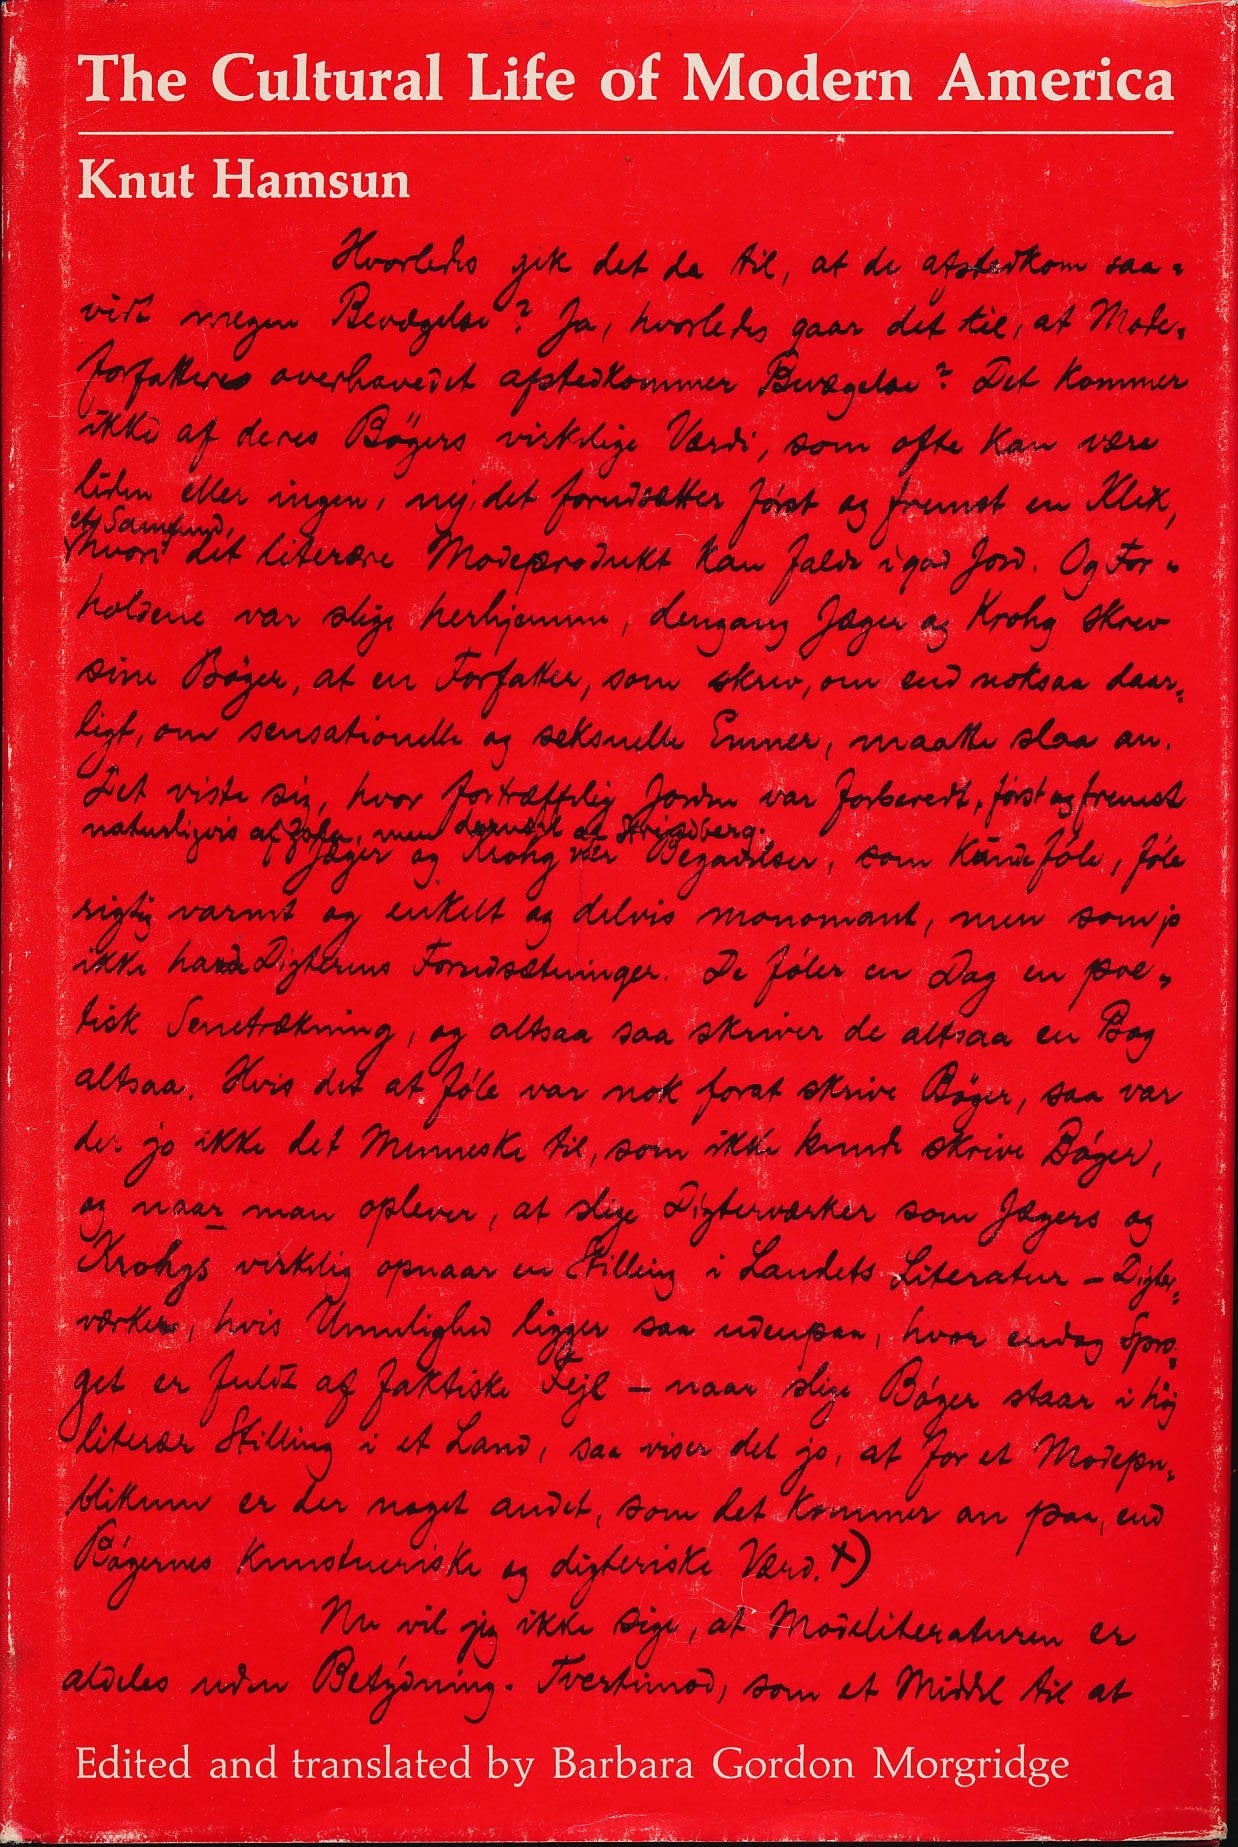 The Cultural Life of Modern America
Knut Hamsun
Hvorledes gik det da til, at de afstedkom saa-
vidt megen Bevægelse? Ja, hvorledes gaar det til, at Mode-
forfattere overhovedet afstedkommer Bevægelse? Det kommer
ikke af deres Bøgers virkelige Værdi, som ofte kan være
liden eller ingen, nej, det forudsætter først og fremst en Klik,
et Samfund,
hvori det literære Modeprodukt kan falde i god Jord. Og For-
holdene var slige herhjemme, dengang Jæger og Krohg skrev
sine Bøger, at en Forfatter, som skrev, om end noksaa daar-
ligt, om sensationelle og seksuelle Emner, maatte slaa an.
Det viste sig, hvor fortræffelig Jorden var forberedt, først og fremst
naturligvis af Zola, men dernæst af Strindberg.
Jæger og Krohg var Begavelser, som kunde føle, føle
rigtig varmt og enkelt og delvis monomant, men som jo
ikke havde Digterens Forudsætninger. De føler en Dag en poe-
tisk Senetrækning, og altsaa saa skriver de altsaa en Bog
altsaa. Hvis det at føle var nok forat skrive Bøger, saa var
der jo ikke det Menneske til, som ikke kunde skrive Bøger,
og naar man oplever, at slige Digterværker som Jægers og
Krohgs virkelig opnaar en Stilling i Landets Literatur – Digter-
værker, hvis Umulighed ligger saa udenpaa, hvor endog Spro-
get er fuldt af faktiske Fejl – naar slige Bøger staar i høj
literær Stilling i et Land, saa viser det jo, at for et Modepu-
blikum er der noget andet, som det kommer an paa, end
Bøgernes kunstneriske og digteriske Værd. x)
Nu vil jeg ikke sige, at Modeliteraturen er
aldeles uden Betydning. Tvertimod, som et Middel til at
Edited and translated by Barbara Gordon Morgridge